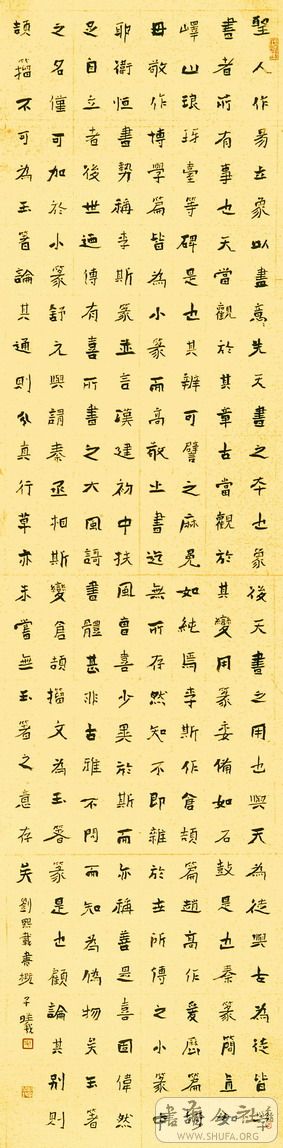 聖人作易立象以盡意〻先天書之本也象後天書之用也與天為徒與古為徒皆學
書者所有事也天當觀於其章古當觀於其變用篆委備如石鼓是也秦篆簡直如
嶧山琅琊臺等碑是也其辨可譬之麻冕如純焉李斯作倉頡篇趙高作爰歷篇胡
毋敬作博學篇皆為小篆而高敬之書迄無所存然知不即雜於世所傳之小篆中
耶衛恒書勢稱李斯篆並言漢建初中扶風曹喜少異於斯而亦稱善是喜固偉然
足自立者後世迺傳有喜所書之大風謌書體甚非古雅不問而知為偽物矣玉箸
之名僅可加於小篆舒元輿謂秦丞相斯變倉頡籀文為玉箸篆是也顧論其別則
頡籀不可為玉箸論其通則分真行草亦未嘗無玉箸之意存矣
劉熙載書概
WWW.SHUFA.ORG